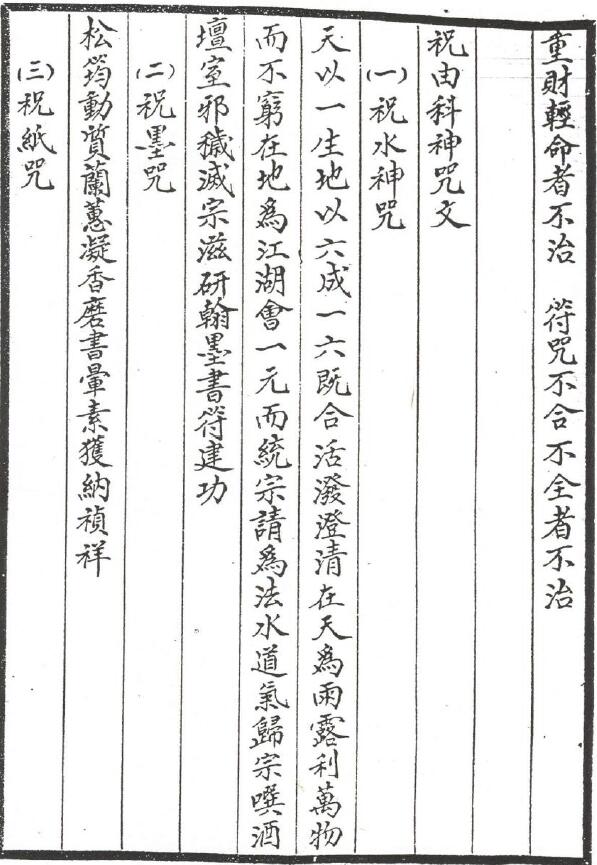 重財輕命者不治　符咒不合不全者不治
祝由科神咒文
(一)祝水神咒
天以一生地以六成一六既合活潑澄清在天爲雨露利萬物
而不窮在地爲江湖會一元而統宗請爲法水道氣歸宗噀酒
壇室邪穢滅宗滋研翰墨書符建功
(二)祝墨咒
松筠動質蘭蕙凝香磨書暈素獲納禎祥
(三)祝紙咒